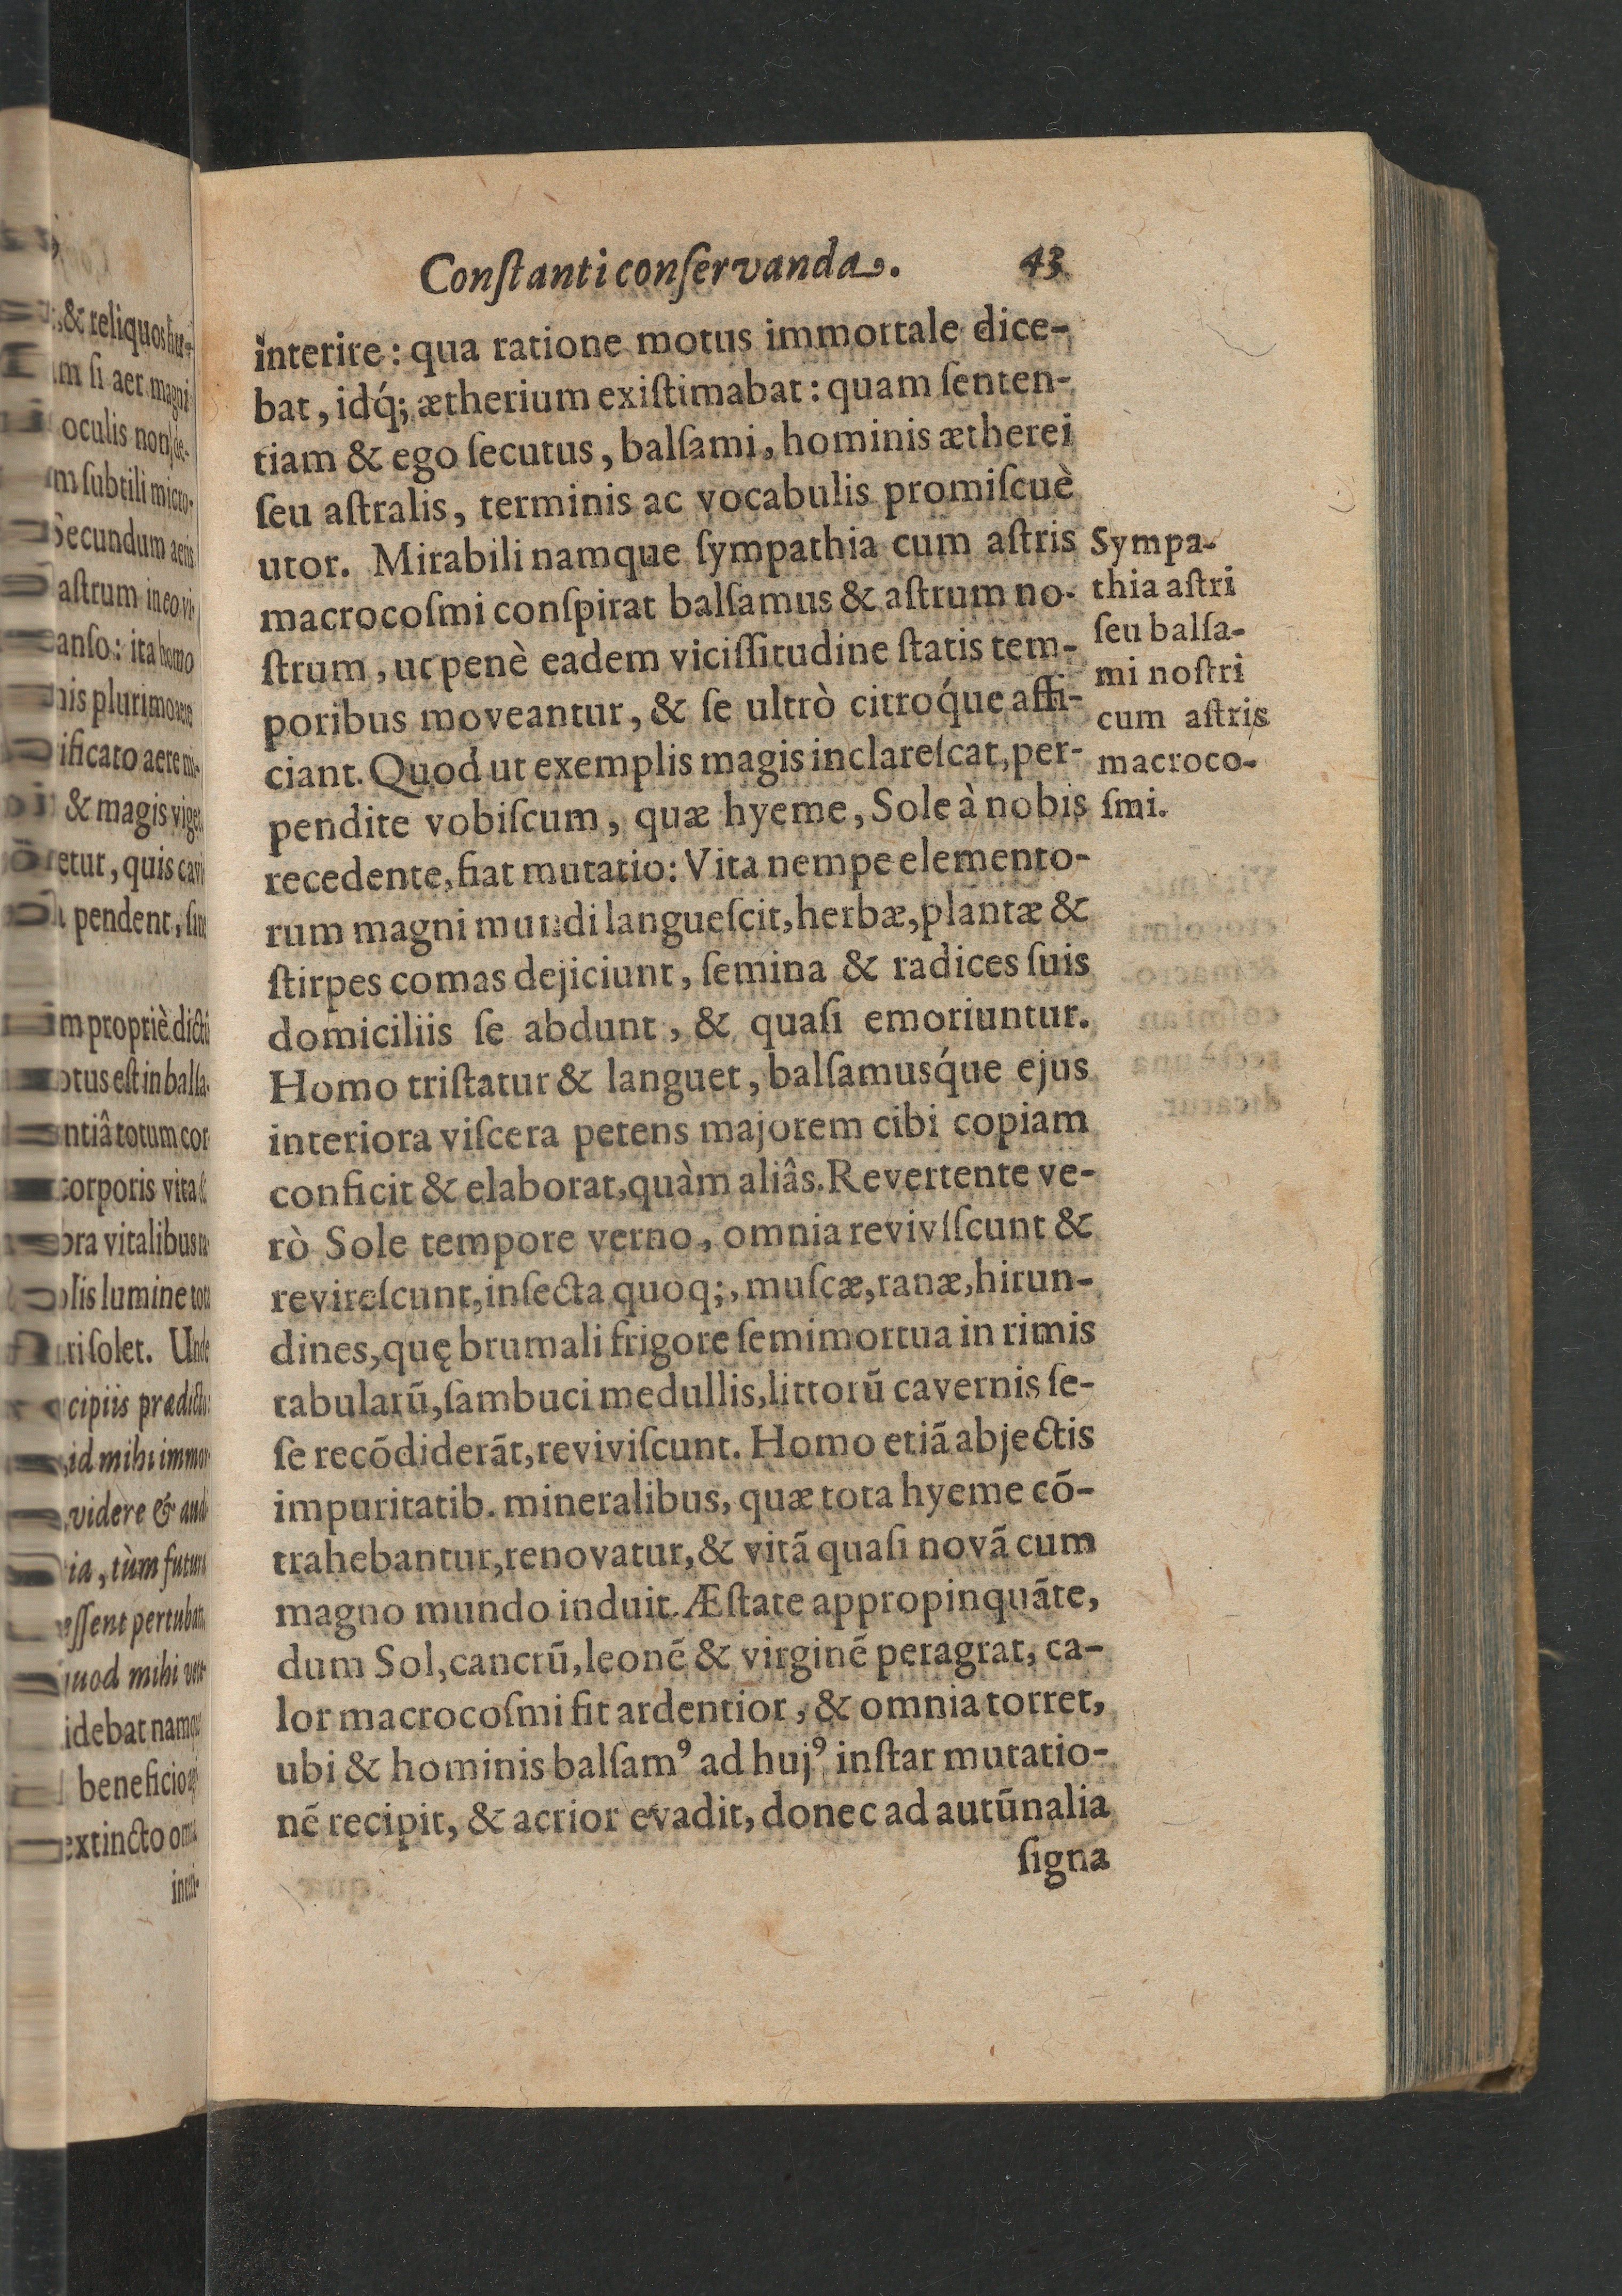 Conſtanti conſervanda. 43
interire: qua ratione motus immortale dice-
bat, idq́; ætherium exiſtimabat: quam ſenten-
tiam & ego ſecutus, balſami, hominis ætherei
ſeu aſtralis, terminis ac vocabulis promiſcuè
utor. Mirabili namque ſympathia cum aſtris
macrocoſmi conſpirat balſamus & aſtrum no-
ſtrum, ut penè eadem viciſſitudine ſtatis tem-
poribus moveantur, & ſe ultrò citroq́ue affi-
ciant. Quod ut exemplis magis inclareſcat, per-
pendite vobiſcum, quæ hyeme, Sole à nobis
recedente, fiat mutatio: Vita nempe elemento-
rum magni mundi langueſcit, herbæ, plantæ &
ſtirpes comas dejiciunt, ſemina & radices ſuis
domiciliis ſe abdunt, & quaſi emoriuntur.
Homo triſtatur & languet, balſamusq́ue ejus
interiora viſcera petens majorem cibi copiam
conficit & elaborat, quàm aliâs. Revertente ve-
rò Sole tempore verno, omnia reviviſcunt &
revireſcunt, inſecta quoq;, muſcæ, ranæ, hirun-
dines, quę brumali frigore ſemimortua in rimis
tabularū, ſambuci medullis, littorū cavernis ſe-
ſe recōdiderāt, reviviſcunt. Homo etiā abjectis
impuritatib. mineralibus, quæ tota hyeme cō-
trahebantur, renovatur, & vitā quaſi novā cum
magno mundo induit. Æſtate appropinquāte,
dum Sol, cancrū, leonē & virginē peragrat, ca-
lor macrocoſmi fit ardentior, & omnia torret,
ubi & hominis balſamꝰ ad hujꝰ inſtar mutatio-
nē recipit, & acrior evadit, donec ad autūnalia
ſigna
Sympa-
thia aſtri
ſeu balſa-
mi noſtri
cum aſtris
macroco-
ſmi.